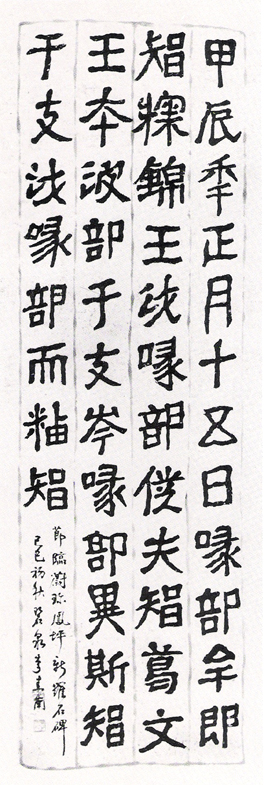 甲辰秊正月十五日喙部牟即
智寐錦王沙喙部僕夫智葛文
王夲波部干支岑喙部異斯智
干支沙喙部而粘智
節臨蔚珍鳳坪新羅石碑
己巳初秋碧泉李